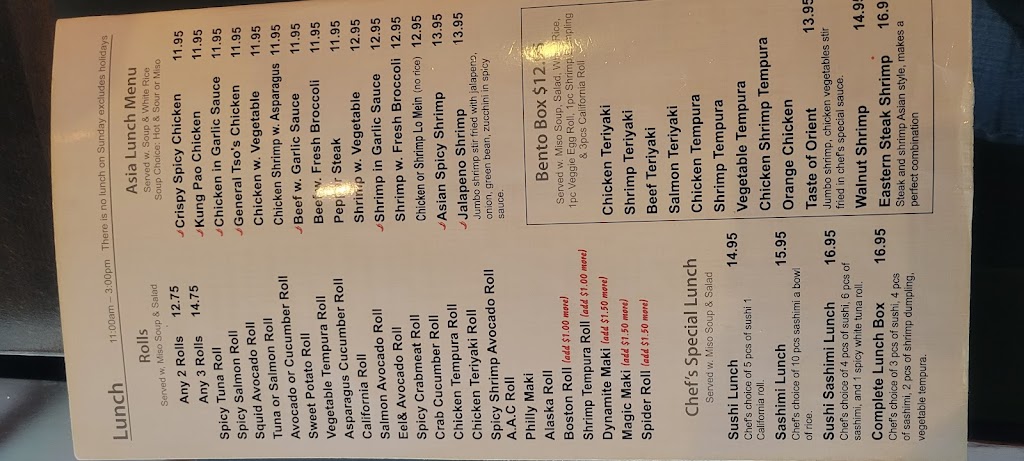 Lunch 11:00am – 3:00pm There is no lunch on Sunday excludes holidays
Rolls
Served w. Miso Soup & Salad
Any 2 Rolls 12.75
Any 3 Rolls 14.75
Spicy Tuna Roll
Spicy Salmon Roll
Squid Avocado Roll
Tuna or Salmon Roll
Avocado or Cucumber Roll
Sweet Potato Roll
Vegetable Tempura Roll
Asparagus Cucumber Roll
California Roll
Salmon Avocado Roll
Eel& Avocado Roll
Spicy Crabmeat Roll
Crab Cucumber Roll
Chicken Tempura Roll
Chicken Teriyaki Roll
Spicy Shrimp Avocado Roll
A.A.C Roll
Philly Maki
Alaska Roll
Boston Roll (add $1.00 more)
Shrimp Tempura Roll (add $1.00 more)
Dynamite Maki (add $1.50 more)
Magic Maki (add $1.50 more)
Spider Roll (add $1.50 more)
Chef's Special Lunch
Served w. Miso Soup & Salad
Sushi Lunch 14.95
Chef's choice of 5 pcs of sushi 1
California roll.
Sashimi Lunch 15.95
Chef's choice of 10 pcs sashimi a bowl
of rice.
Sushi Sashimi Lunch 16.95
Chef's choice of 4 pcs of sushi, 6 pcs of
sashimi, and 1 spicy white tuna roll.
Complete Lunch Box 16.95
Chef's choice of 3 pcs of sushi, 4 pcs
of sashimi, 2 pcs of shrimp dumpling,
vegetable tempura.
Asia Lunch Menu
Served w. Soup & White Rice
Soup Choice: Hot & Sour or Miso
Crispy Spicy Chicken 11.95
Kung Pao Chicken 11.95
Chicken in Garlic Sauce 11.95
General Tso's Chicken 11.95
Chicken w. Vegetable 11.95
Chicken Shrimp w. Asparagus 11.95
Beef w. Garlic Sauce 11.95
Beef w. Fresh Broccoli 11.95
Pepper Steak 11.95
Shrimp w. Vegetable 12.95
Shrimp in Garlic Sauce 12.95
Shrimp w. Fresh Broccoli 12.95
Chicken or Shrimp Lo Mein (no rice) 12.95
Asian Spicy Shrimp 13.95
Jalapeno Shrimp 13.95
Jumbo shrimp stir fried with jalapeno,
onion, green bean, zucchini in spicy
sauce.
Bento Box $12.
Served w. Miso Soup, Salad, White Rice,
1pc Veggie Egg Roll, 1pc Shrimp Dumpling
& 3pcs California Roll
Chicken Teriyaki
Shrimp Teriyaki
Beef Teriyaki
Salmon Teriyaki
Chicken Tempura
Shrimp Tempura
Vegetable Tempura
Chicken Shrimp Tempura
Orange Chicken
Taste of Orient 13.95
Jumbo shrimp, chicken vegetables stir
fried in chef's special sauce.
Walnut Shrimp 14.95
Eastern Steak Shrimp 16.9
Steak and shrimp Asian style, makes a
perfect combination